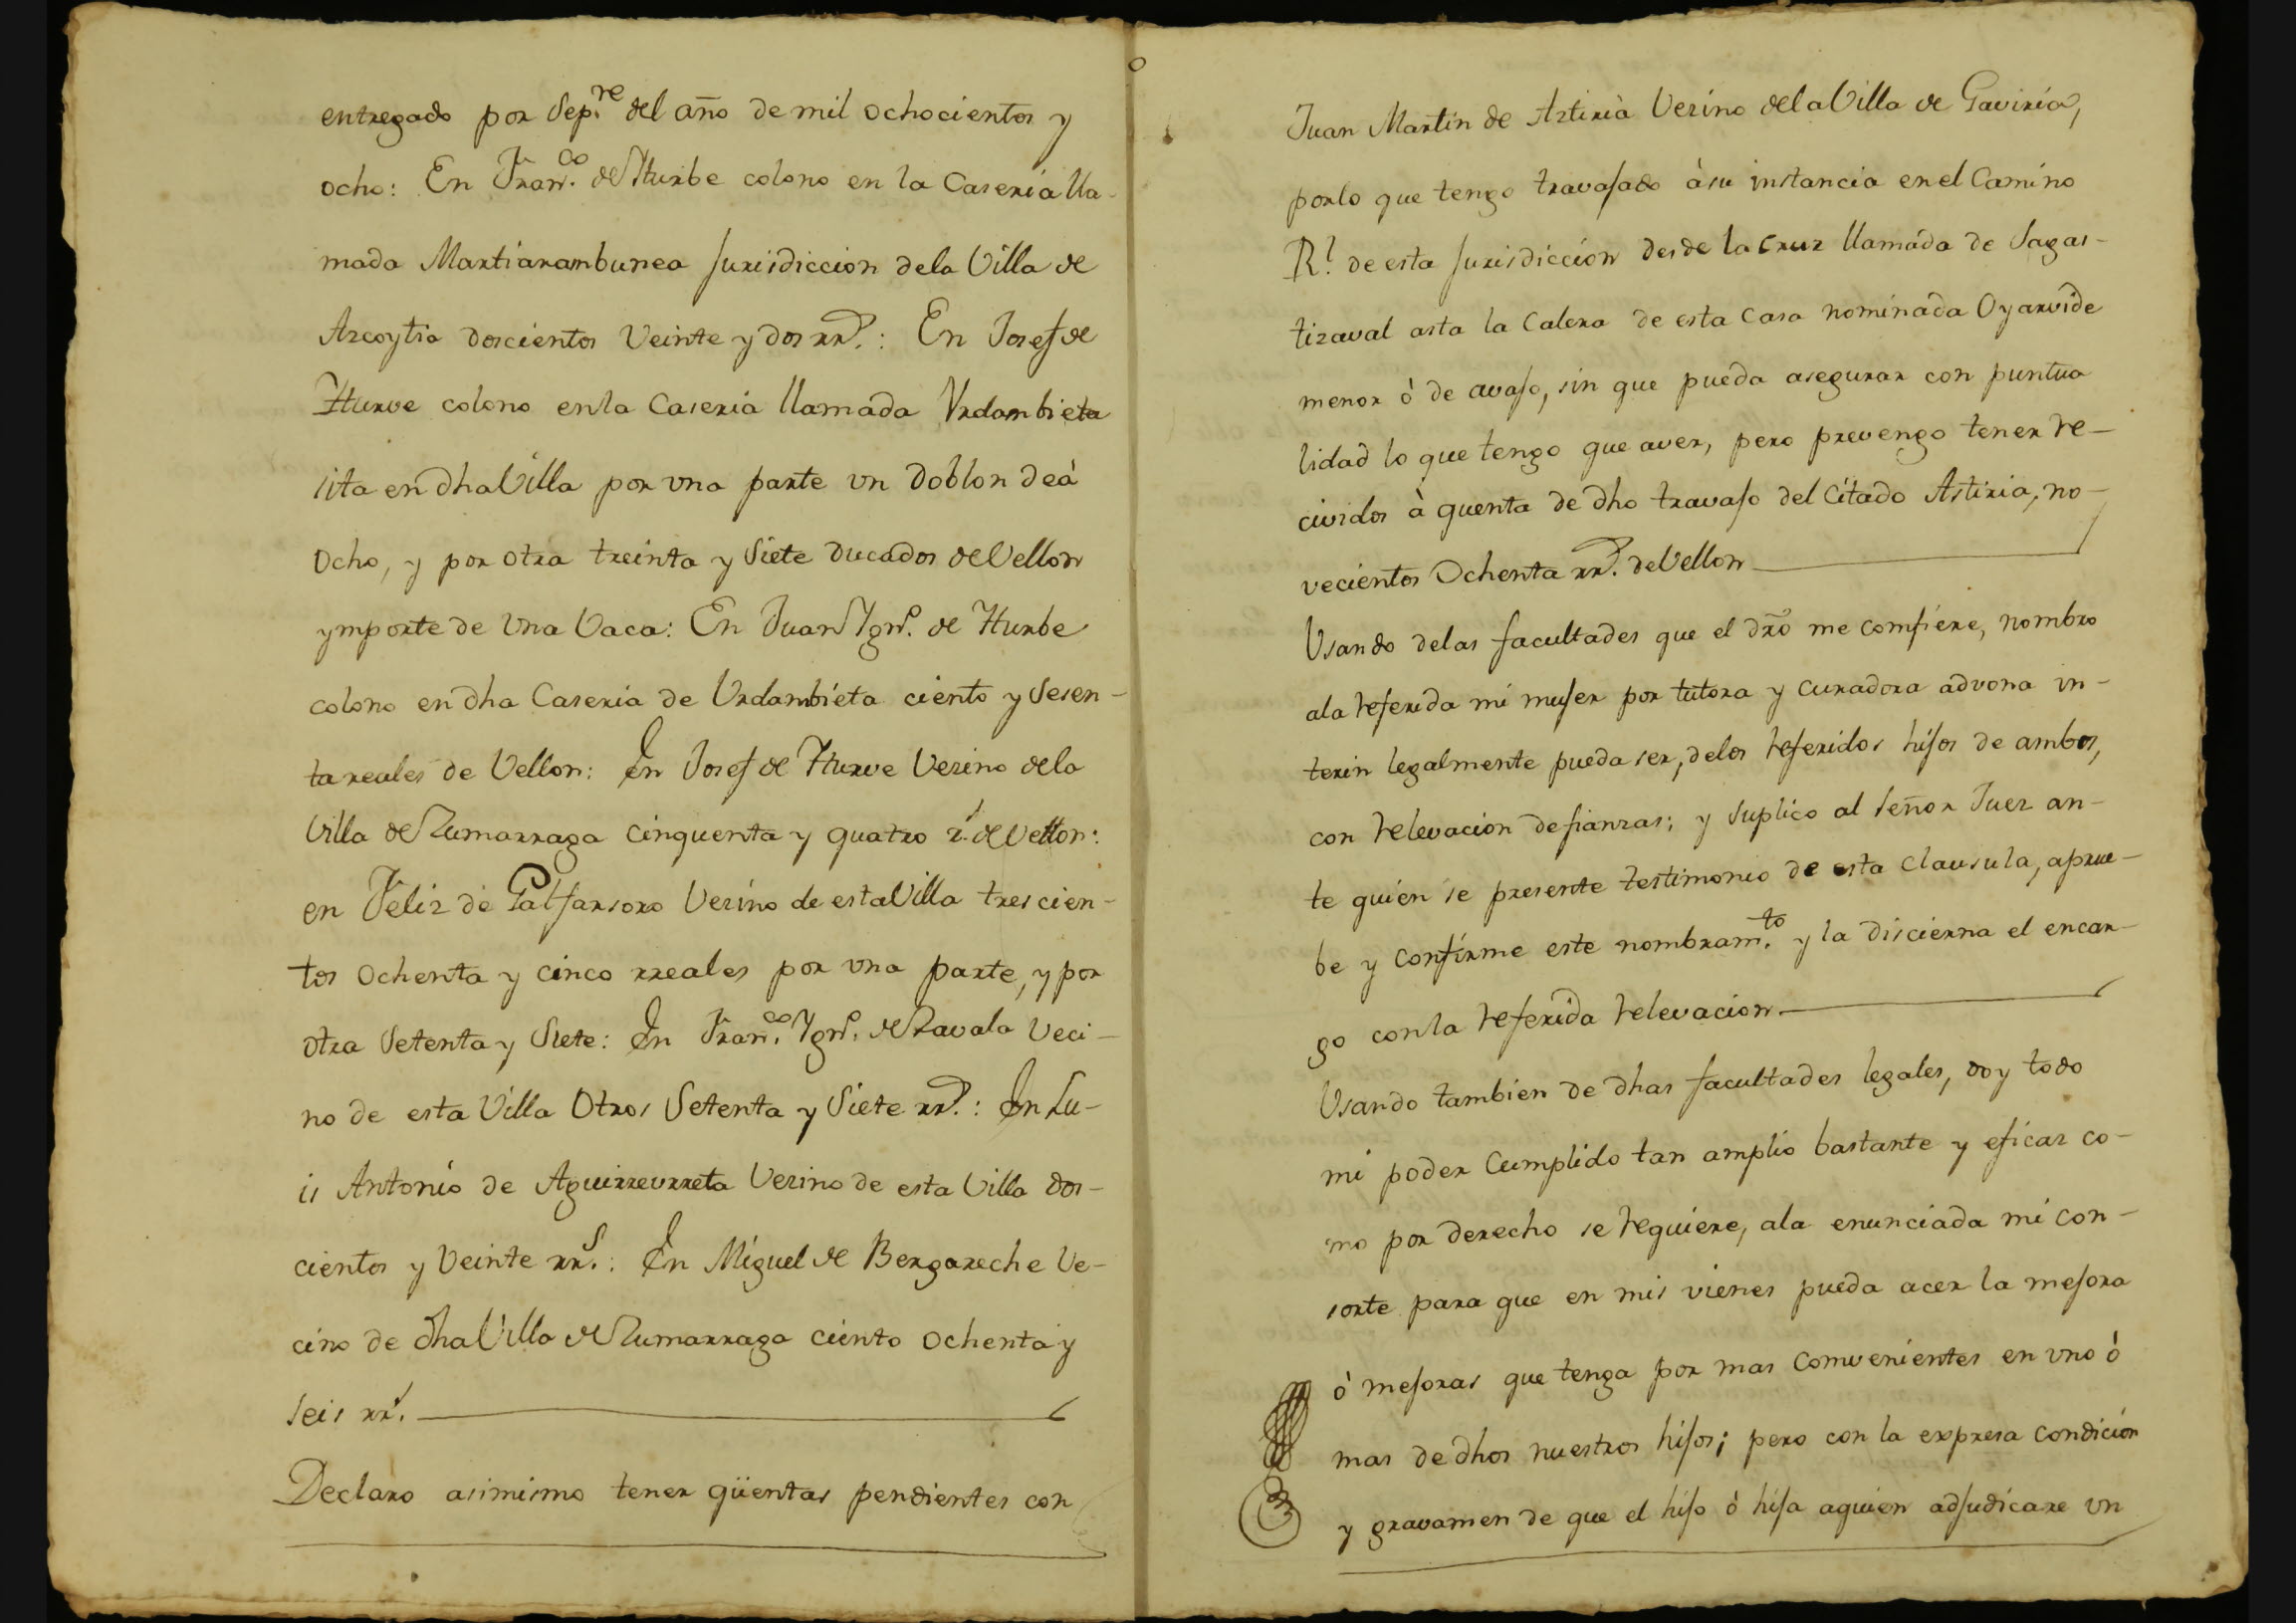 entregado por Sep.re del año de mil ochocientos y
ocho: En Fran.co de Yturbe colono en la Caseria lla-
mada Martiarambunea jurisdiccion dela Villa de
Azcoytia doscientos Veinte y dos rr.s: En Josef de
Yturve colono enla Caseria llamada Vrdambieta
sita en dha Villa por vna parte vn Doblon deà
Ocho, y por otra treinta y Siete ducados de Vellon
ymporte de Vna Vaca: En Juan Ygn.o de Yturbe
colono en dha Caseria de Urdambieta ciento y Sesen-
ta reales de Vellon: En Josef de Yturve Vezino dela
Villa de Zumarraga Cinquenta y quatro r.s de Vellon:
en Feliz de Galfarsoro Vezino de esta Villa trescien-
tos Ochenta y cinco rreales por vna parte, y por
otra Setenta y Siete: En Fran.co Ygn.o de Zavala Veci-
no de esta Villa Otros Setenta y Siete rr.s: En Lu-
is Antonio de Aguirreurreta Vezino de esta Villa dos-
cientos y Veinte rr.s: En Miguel de Bergareche Ve-
cino de dha Villa de Zumarraga ciento ochenta y
seis rr.s
Declaro asimismo tener qüentas pendientes con
Juan Martin de Aztiria Vezino dela Villa de Gaviria,
porlo que tengo travajado à su instancia en el Camino
R.l de esta jurisdiccion desde la Cruz llamada de Sagas-
tizaval asta la Calera de esta Casa nominada Oyarvide
menor ò de avajo, sin que pueda asegurar con puntua
lidad lo que tengo que aver, pero prevengo tener re-
cividos à quenta de dho travajo del Citado Astiria, no-
vecientos Ochenta rr.s de Vellon
Usando delas facultades que el dro me comfiere, nombro
ala referida mi mujer por tutora y curadora advona in-
terin legalmente pueda ser, delos referidos hijos de ambos,
con relevacion defianzas; y suplico al Señor Juez an-
te quien se presente testimonio de esta clausula, aprue-
be y confirme este nombram.to y la discierna el encar-
go conla referida relevacion
Usando tambien de dhas facultades legales, doy todo
mi poder Cumplido tan amplio bastante y eficaz co-
mo por derecho se requiere, ala enunciada mi con-
sorte para que en mis vienes pueda acer la mejora
ò mejoras que tenga por mas Comvenientes en vno ò
mas de dhos nuestros hijos; pero con la expresa condicion
y gravamen de que el hijo ò hija aquien adjudicare vn